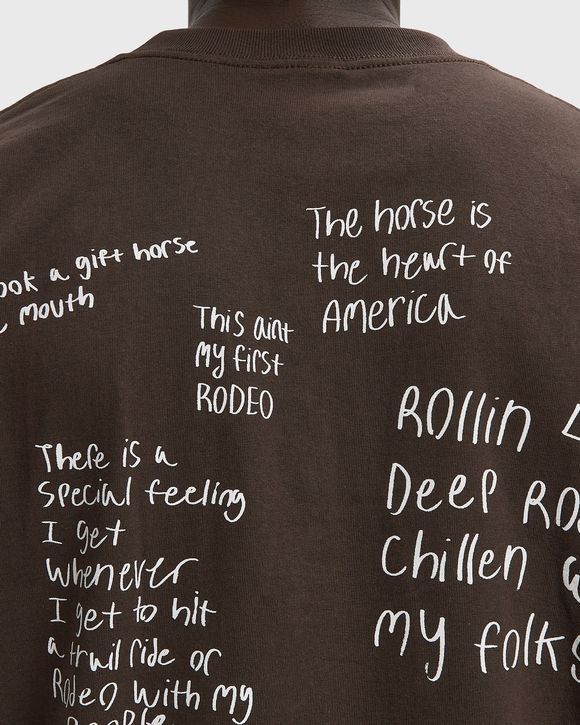 The horse is
the heart of
America
a gift horse
mouth
This aint
my first
RODEO
Rollin
Deep
Chillen
my folks
There is a
special feeling
I get
whenever
I get to hit
a trail ride or
Rodeo with my
people